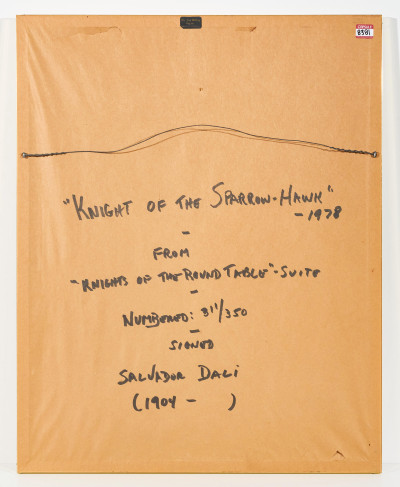 8381
"KNIGHT OF THE SPARROW-HAWK"
- 1978
-
FROM
- "KNIGHTS OF THE ROUND TABLE" - SUITE
-
NUMBERED: 311/350
-
SIGNED
SALVADOR DALI
(1904 - )